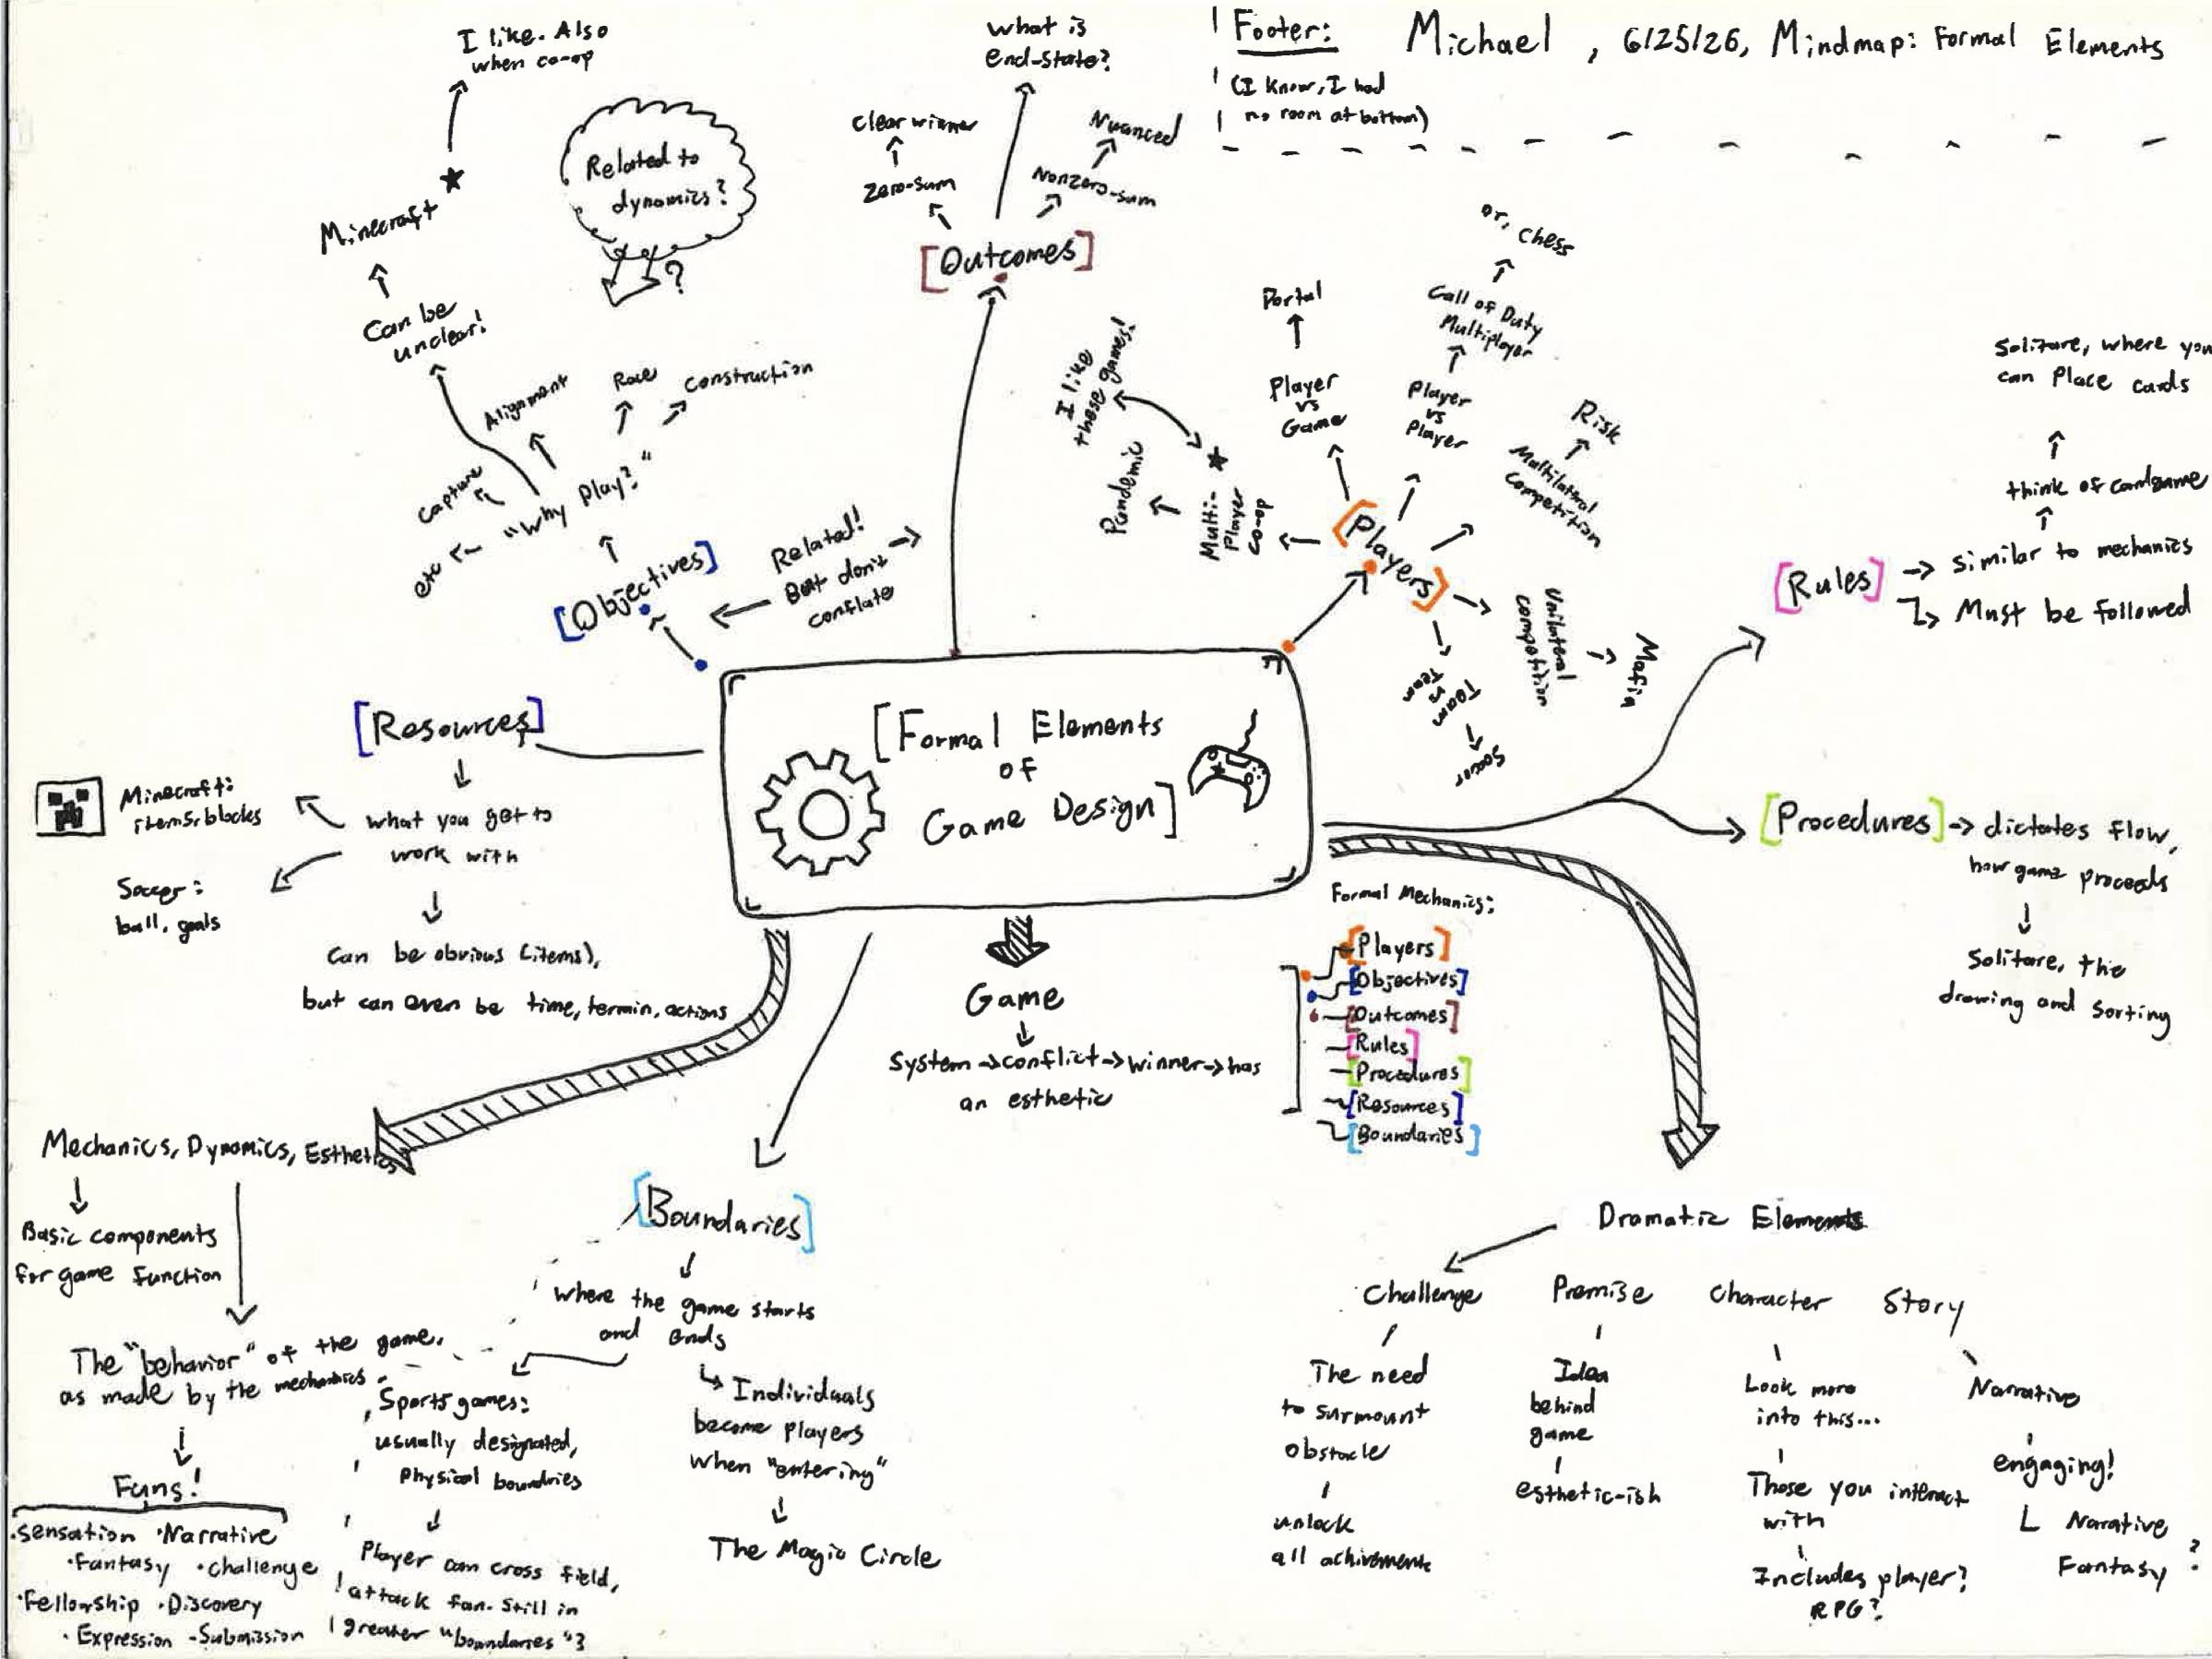 Footer: Michael, 6/25/26, Mindmap: Formal Elements
(I know, I had
no room at bottom)
I like. Also
when co-op
Minecraft
Can be
unclear!
Related to
dynamics?
?
Alignment
Race
Construction
Capture
etc
"Why Play?"
[Objectives]
Related!
But don't
conflate
What is
end-state?
Clear winner
Zero-sum
Nuanced
Nonzero-sum
[Outcomes]
I like
these games!
Pandemic
Multi-
Player
Co-op
Portal
Player
vs
Game
or, Chess
Call of Duty
Multiplayer
Player
vs
Player
Risk
Multilateral
Competition
[Players]
Unilateral
Competition
Mafia
Team
vs
Team
Soccer
Solitare, where you
can Place cards
think of cardgame
[Rules]
similar to mechanics
Must be followed
[Procedures]
dictates flow,
how game proceeds
Solitare, the
drawing and sorting
[Formal Elements
of
Game Design]
[Resources]
what you get to
work with
Minecraft:
items, blocks
Soccer:
ball, goals
Can be obvious (items),
but can even be time, termin, actions
Game
System → conflict → winner → has
an esthetic
Formal Mechanics:
[Players]
[Objectives]
[Outcomes]
[Rules]
[Procedures]
[Resources]
[Boundaries]
Mechanics, Dynamics, Esthetics
Basic components
for game function
The "behavior" of the game.
as made by the mechanics.
Funs!
·Sensation ·Narrative
·Fantasy ·Challenge
·Fellowship ·Discovery
·Expression -Submission
[Boundaries]
where the game starts
and ends
Sports games:
usually designated,
Physical boundries
Player can cross field,
attack fan. Still in
greater "boundaries"?
Individuals
become players
when "entering"
The Magic Circle
Dramatic Elements
Challenge
The need
to surmount
obstacle
unlock
all achivements
Premise
Idea
behind
game
esthetic-ish
Character
Look more
into this...
Those you interact
with
Includes player?
RPG?
Story
Narrative
engaging!
Narative
Fantasy ?